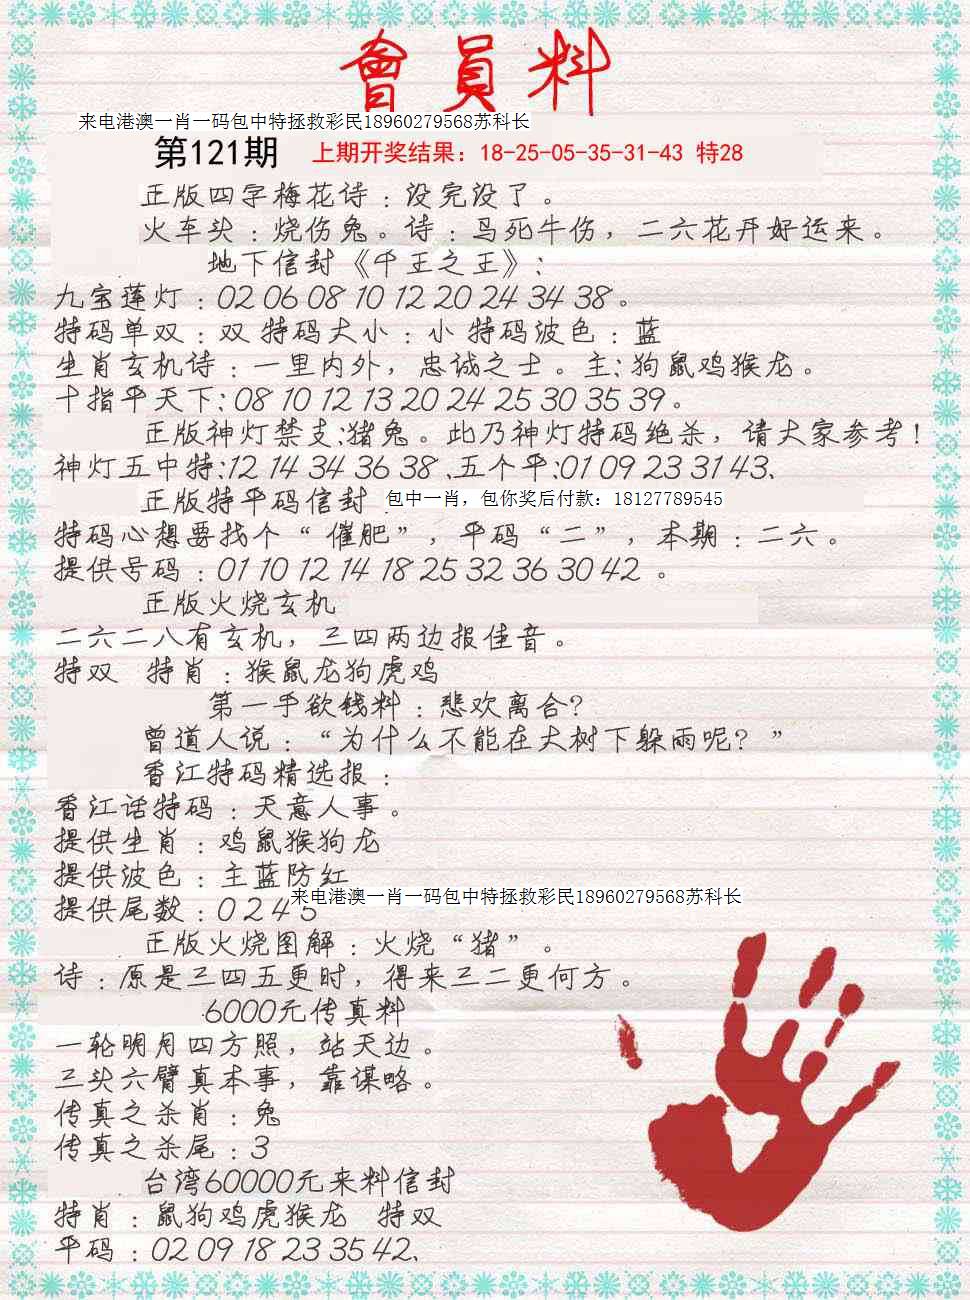 會員料
来电港澳一肖一码包中特拯救彩民18960279568苏科长
第121期 上期开奖结果：18-25-05-35-31-43 特28
正版四字梅花诗：没完没了。
火车头：烧伤兔。诗：马死牛伤，二六花开好运来。
地下信封《千王之王》：
九宝莲灯：02 06 08 10 12 20 24 34 38。
特码单双：双 特码大小：小 特码波色：蓝
生肖玄机诗：一里内外，忠诚之士。主：狗鼠鸡猴龙。
十指平天下：08 10 12 13 20 24 25 30 35 39。
正版神灯禁支：猪兔。此乃神灯特码绝杀，请大家参考！
神灯五中特：12 14 34 36 38、五个平：01 09 23 31 43、
正版特平码信封 包中一肖，包你奖后付款：18127789545
特码心想要找个“催肥”，平码“二”，本期：二六。
提供号码：01 10 12 14 18 25 32 36 30 42 。
正版火烧玄机
二六二八有玄机，三四两边报佳音。
特双 特肖：猴鼠龙狗虎鸡
第一手欲钱料：悲欢离合？
曾道人说：“为什么不能在大树下躲雨呢？”
香江特码精选报：
香江话特码：天意人事。
提供生肖：鸡鼠猴狗龙
提供波色：主蓝防红
来电港澳一肖一码包中特拯救彩民18960279568苏科长
提供尾数：0 2 4 5
正版火烧图解：火烧“猪”。
诗：原是三四五更时，得来三二更何方。
6000元传真料
一轮明月四方照，站天边。
三头六臂真本事，靠谋略。
传真之杀肖：兔
传真之杀尾：3
台湾60000元来料信封
特肖：鼠狗鸡虎猴龙 特双
平码：02 09 18 23 35 42、